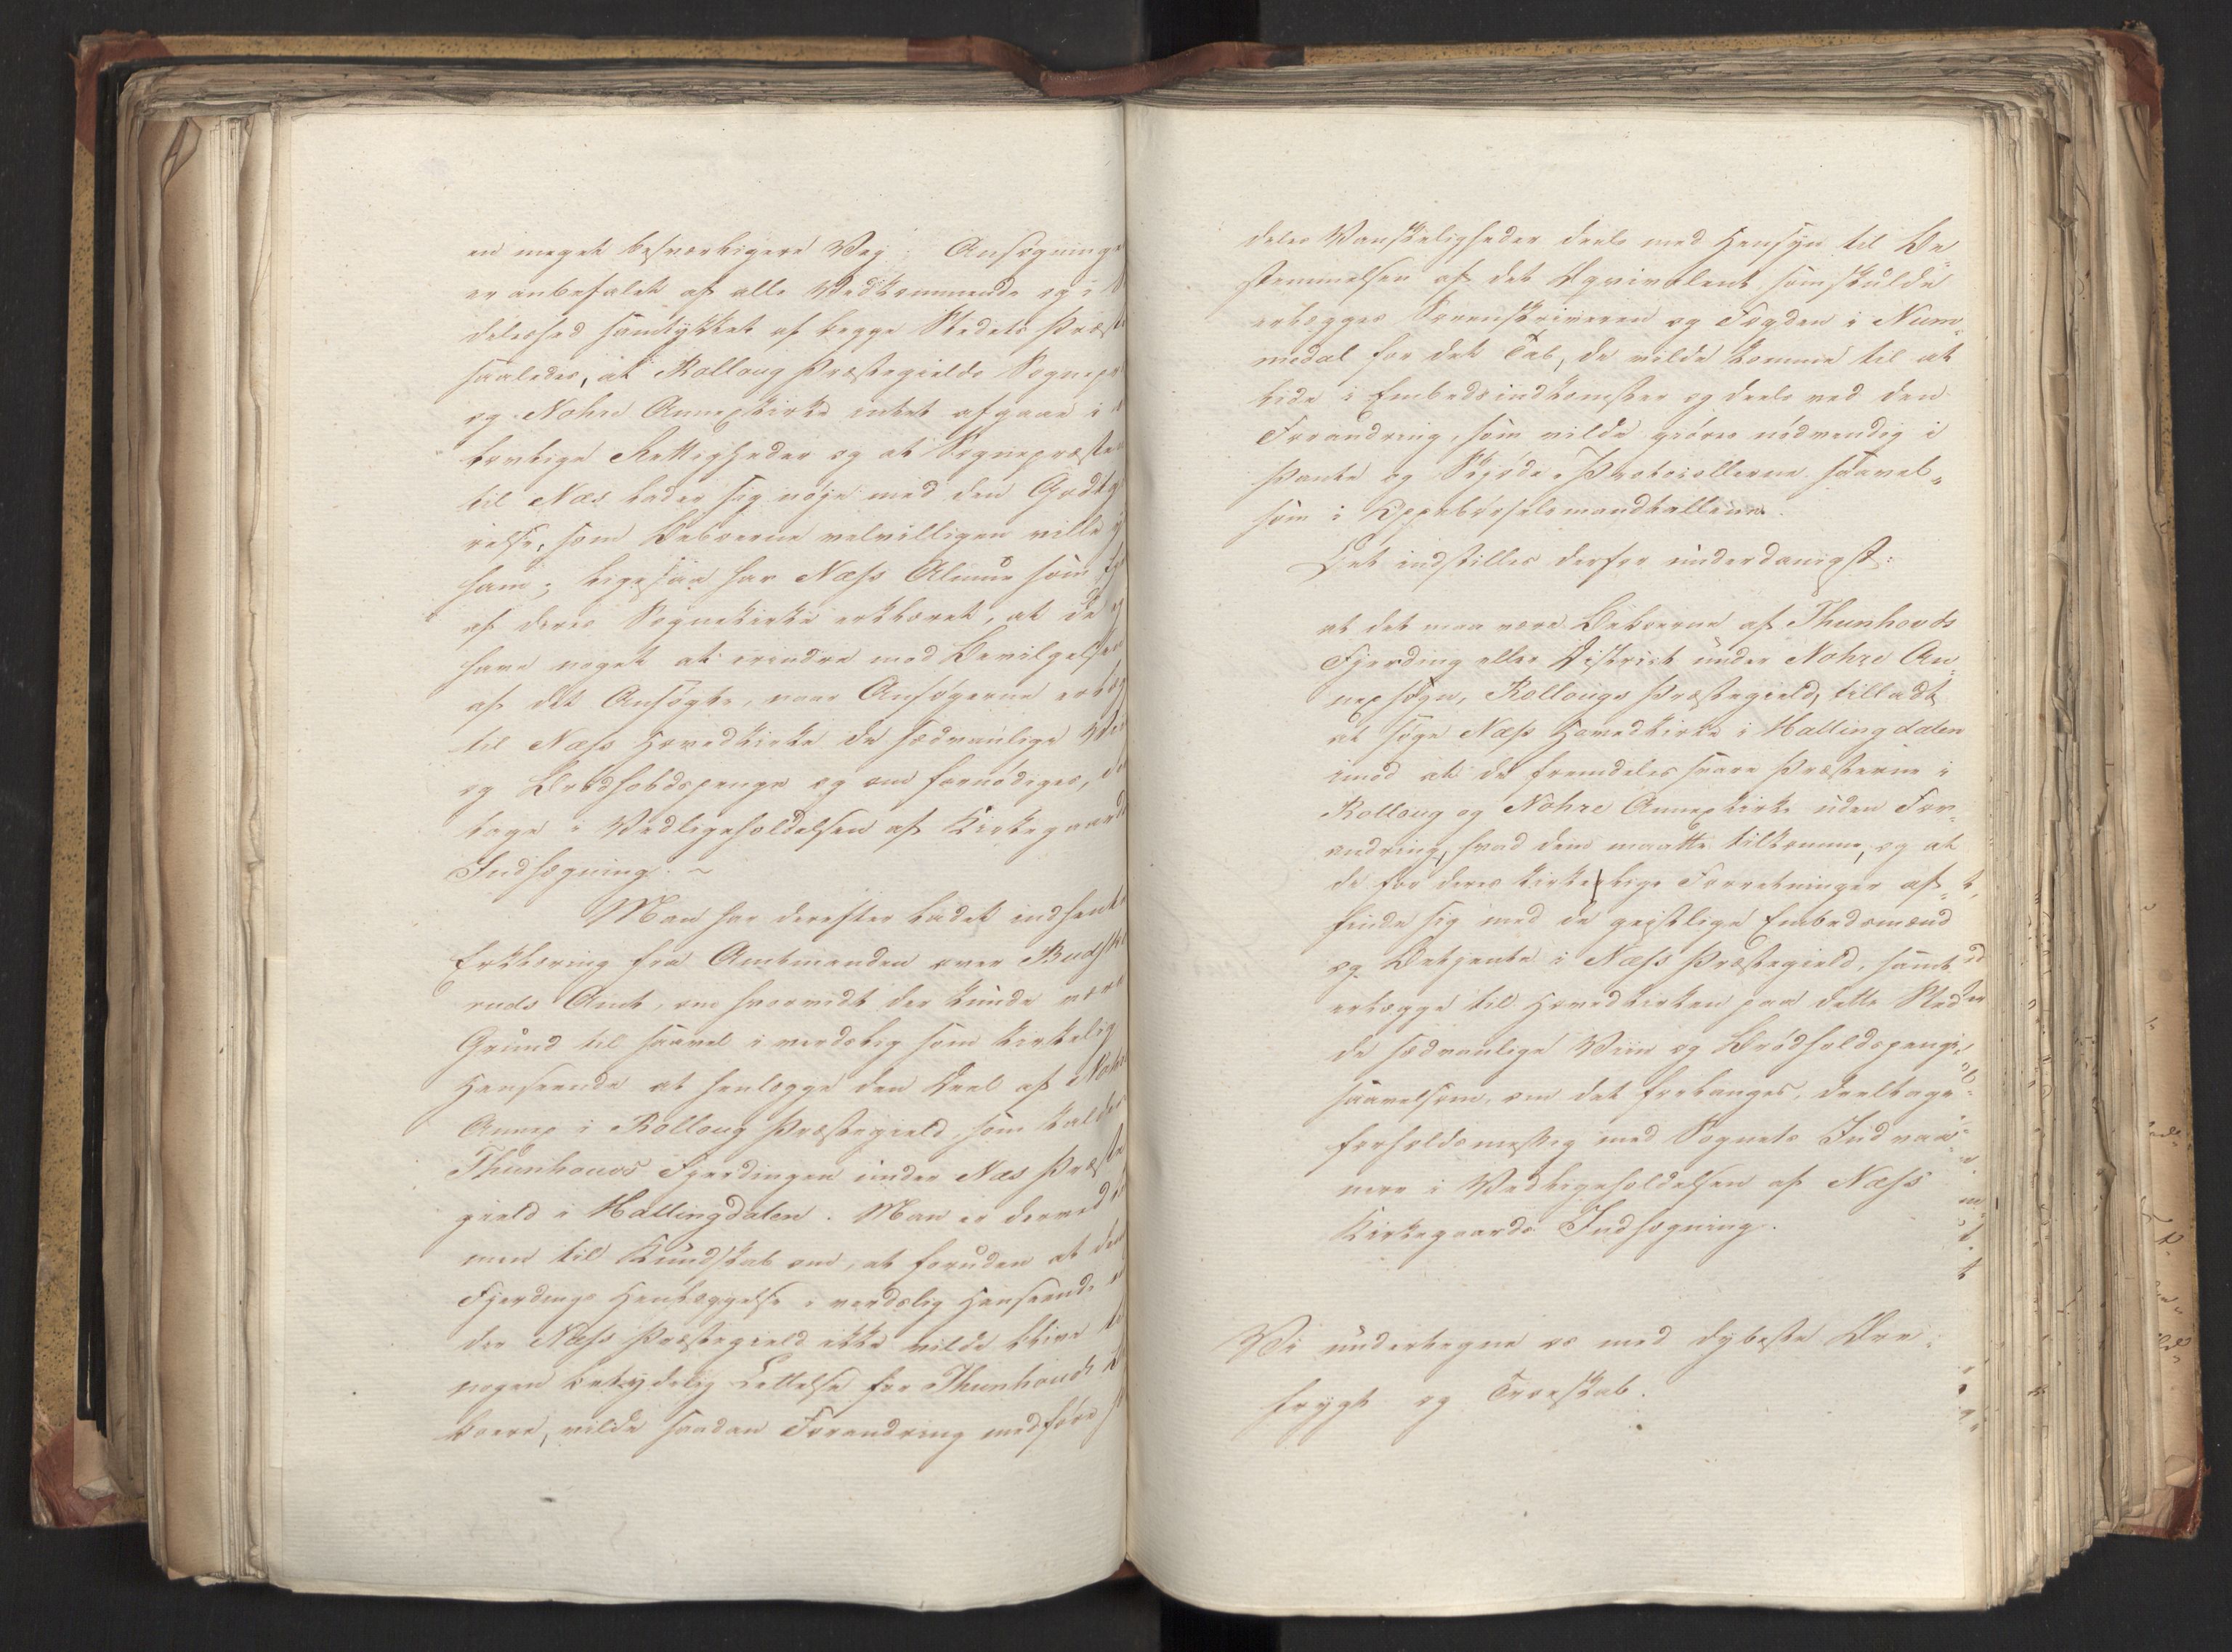 en meget besværligere Vej. Ansøgninge
er anbefalet af alle Vedkommende og i
deleshed samtykket af begge Stedets Præste
saaledes, at Rolloug Præstegields Sognepr
og Nohre Annexkirke intet afgaaer i
kirkelige Rettigheder og at Sognepræsten
til Næs lader sig nøje med den Godtg
relse, som Beboerne velvilligen ville
ham; ligesaa har Næss Almue som Ejer
af deres Sognekirke erklæret, at de ej
have noget at erindre mod Bevilgelsen
af det Ansøgte, naar Ansøgerne erlæg
til Næss Hovedkirke de sædvanlige Viin
og Brødholdspenge og om fornødiges, de
tage i Vedligeholdelsen af Kirkegaarde
Indhegning. ~
Man har derefter ladet indhente
Erklæring fra Amtmanden over Budske
ruds Amt, om hvorvidt der kunde være
Grund til saavel i verdslig som kirkelig
Henseende at henlægge den Deel af Nohre
Annex i Rolloug Præstegield, som kaldes
Thunhovds Fjerdingen under Næs Præste
gield i Hallingdalen. Man er derved
men til Kundskab om, at foruden at den
Fjerdings Henlæggelse i verdslig Henseende
der Næss Præstegield ikke vilde blive til
nogen betydelig Lettelse for Thunhovds Be
boere, vilde saadan Forandring medføre
deles Vanskeligheder deels med Hensyn til Be-
stemmelsen af det Eqvivalent som skulde
erlægges Sorenskriveren og Fogden i Num-
medal for det Tab, de vilde komme til at
lide i Embedsindkomster og deels ved den
Forandring, som vilde giøres nødvendig i
Pante og Skjøde-Protocollerne saavel-
som i Oppebørselsmandtallene.
Det indstilles derfor underdanigst:
at det maa være Beboerne af Thunhovds
Fjerding eller District under Nohre An-
nexsogn, Rollougs Præstegield, tilladt
at søge Næss Hovedkirke i Hallingdalen
imod at de fremdeles svare Præsterne i
Rolloug og Nohre Annexkirke uden For-
andring, hvad dem maatte tilkomme, og at
de for deres kirkelige Forretninger af-
finde sig med de geistlige Embedsmænd
og Betjente i Næss Præstegield, samt
erlægge til Hovedkirken paa dette Sted
de sædvanlige Viin og Brødholdspenge,
saavelsom, om det forlanges, deeltage
forholdsmessig med Sognets Indvaa-
nere i Vedligeholdelsen af Næss
Kirkegaards Indhegning.
Vi undertegne os med dybeste Ære-
frygt og Troeskab.